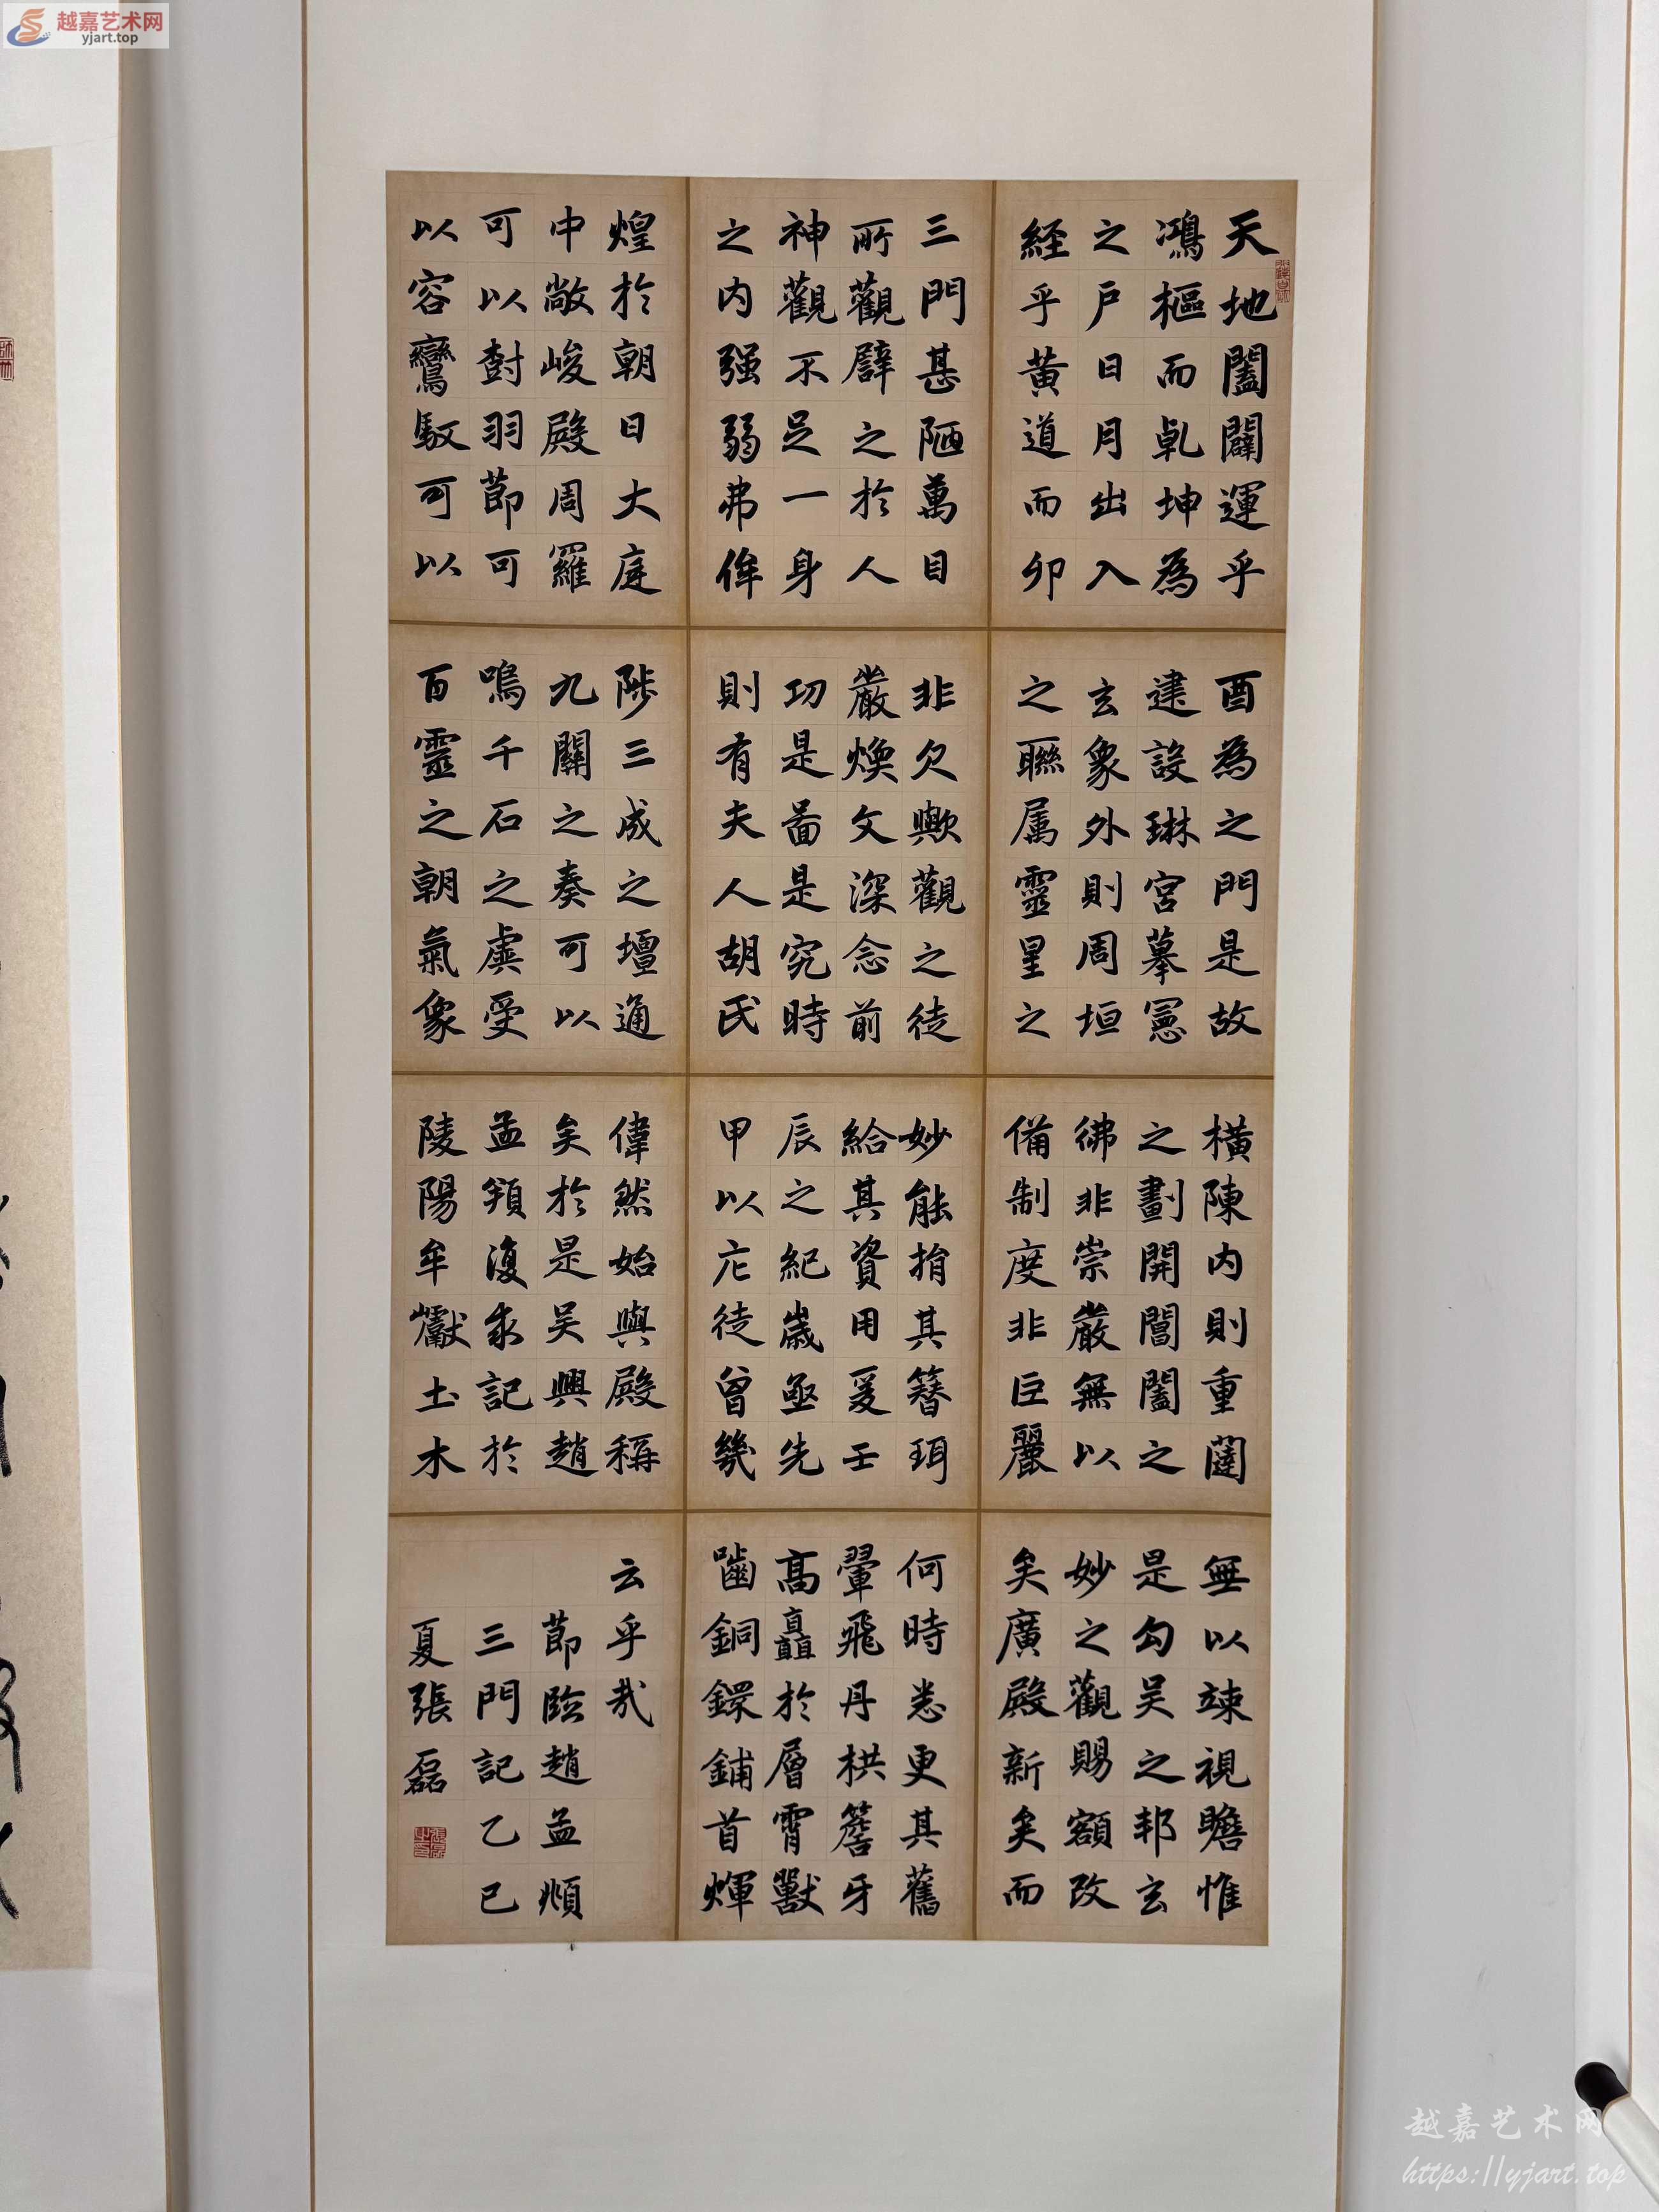 越嘉艺术网
yjart.top
天地闔闢運乎
鴻樞而乹坤為
之户日月出入
経乎黄道而卯
酉為之門是故
建設琳宮摹憲
玄象外則周垣
之聯属靈星之
横陳内則重闥
之劃開閶闔之
彿非崇嚴無以
備制度非巨麗
無以竦視瞻惟
是勾吴之邦玄
妙之觀賜額改
矣廣殿新矣而
三門甚陋萬目
所觀辟之於人
神觀不足一身
之内强弱弗侔
非欠歟觀之徒
嚴焕文深念前
功是啚是究時
則有夫人胡氏
妙能捐其簮珥
給其資用爰壬
辰之紀歲亟先
甲以庀徒曾幾
何時悉更其舊
翬飛丹栱簷牙
高矗於層霄獸
嚙銅鐶鋪首輝
煌於朝日大庭
中敞峻殿周羅
可以樹羽莭可
以容鸞馭可以
陟三成之壇通
九關之奏可以
鳴千石之虡受
百靈之朝氣象
偉然始與殿稱
矣於是吴興趙
孟頫復求記於
陵陽牟巘土木
云乎哉
莭臨趙孟頫
三門記乙巳
夏張磊
越嘉艺术网
https://yjart.top